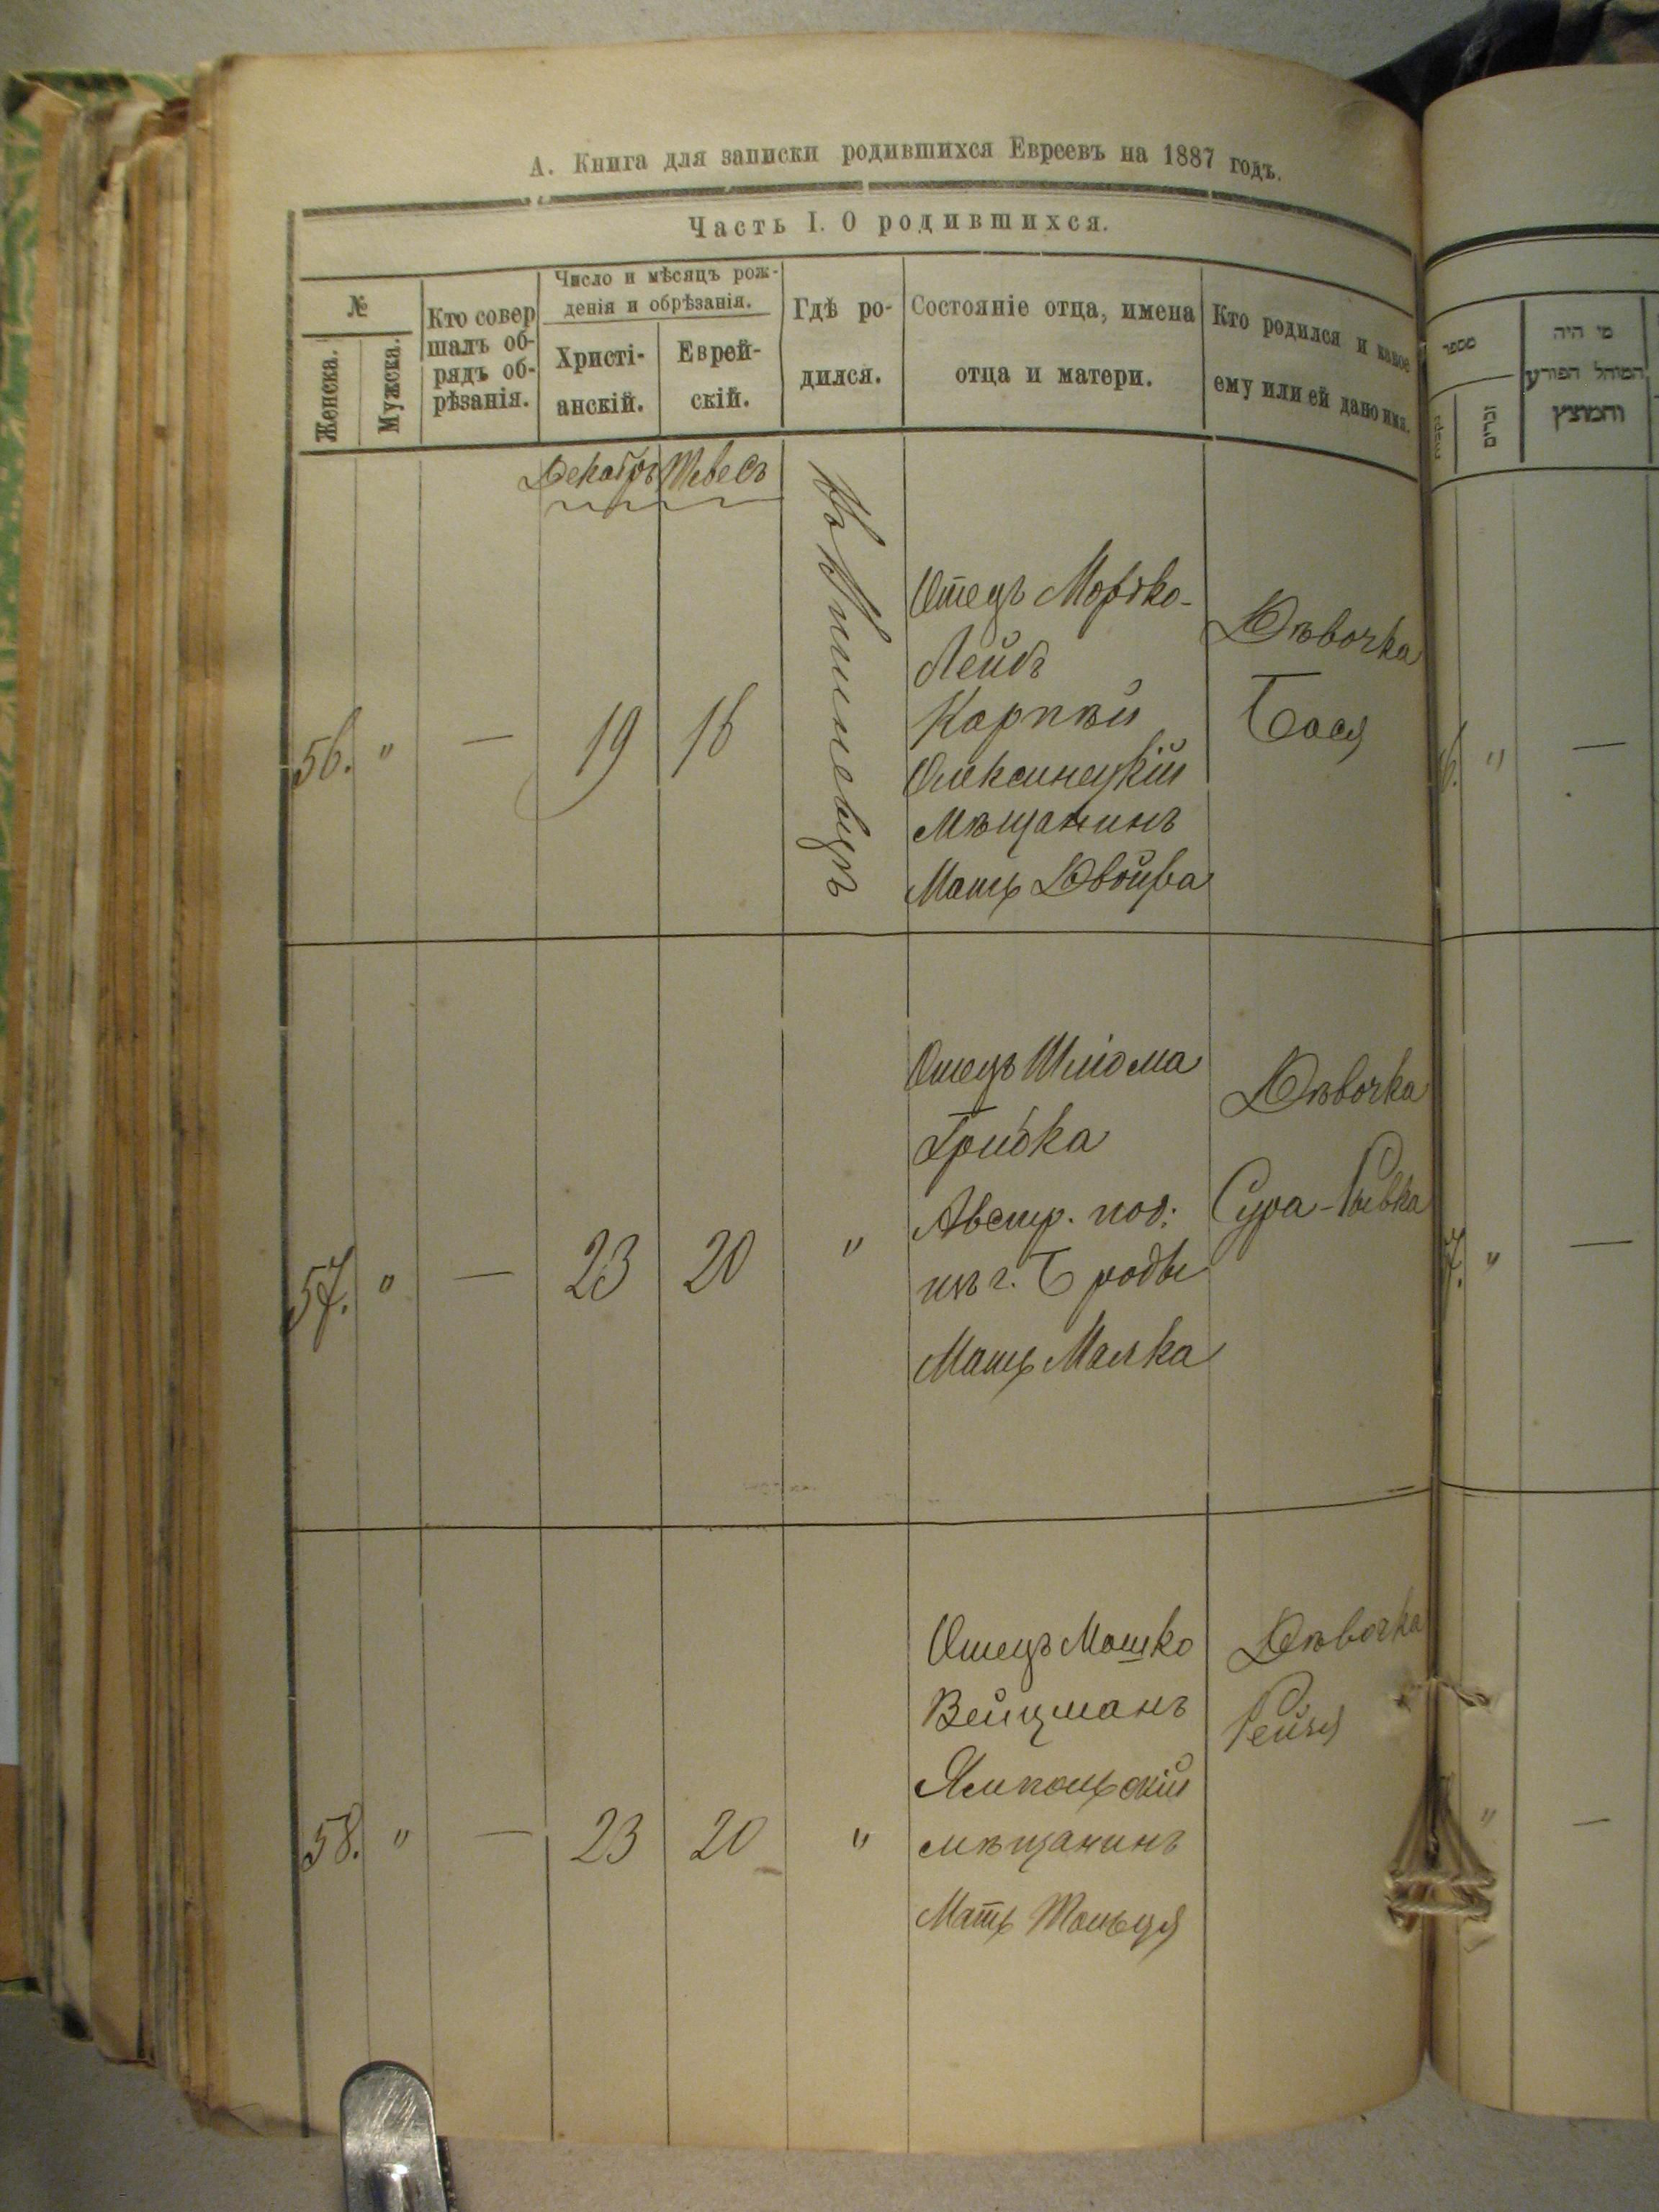 А. Книга для записки родившихся Евреевъ на 1887 годъ.
Часть I. О родившихся.
№
Женска.
Мужска.
Кто совер
шалъ об-
рядъ об-
рѣзанія.
Число и мѣсяцъ рож-
денія и обрѣзанія.
Христі-
анскій.
Еврей-
скій.
Гдѣ ро-
дился.
Состояніе отца, имена
отца и матери.
Кто родился и какое
ему или ей дано имя.
Декабрь Тевесъ
56. " — 19 16
Отецъ Мордко-
Лейбъ
Карпѣй
Олексинецкій
Мѣщанинъ
Мать Двойра
Дѣвочка
Бася
57. " — 23 20 "
Отецъ Шліома
Грибка
Австр. под:
изъ г. Броды
Мать Малка
Дѣвочка
Сура-Ривка
58. " — 23 20 "
Отецъ Мошко
Вейцманъ
Ямпольскій
мѣщанинъ
Мать Тольця
Дѣвочка
Рейзя
מספר
זכרים
מי היה
המוהל הפורע
והמוצץ
6. " —
7. " —
" —